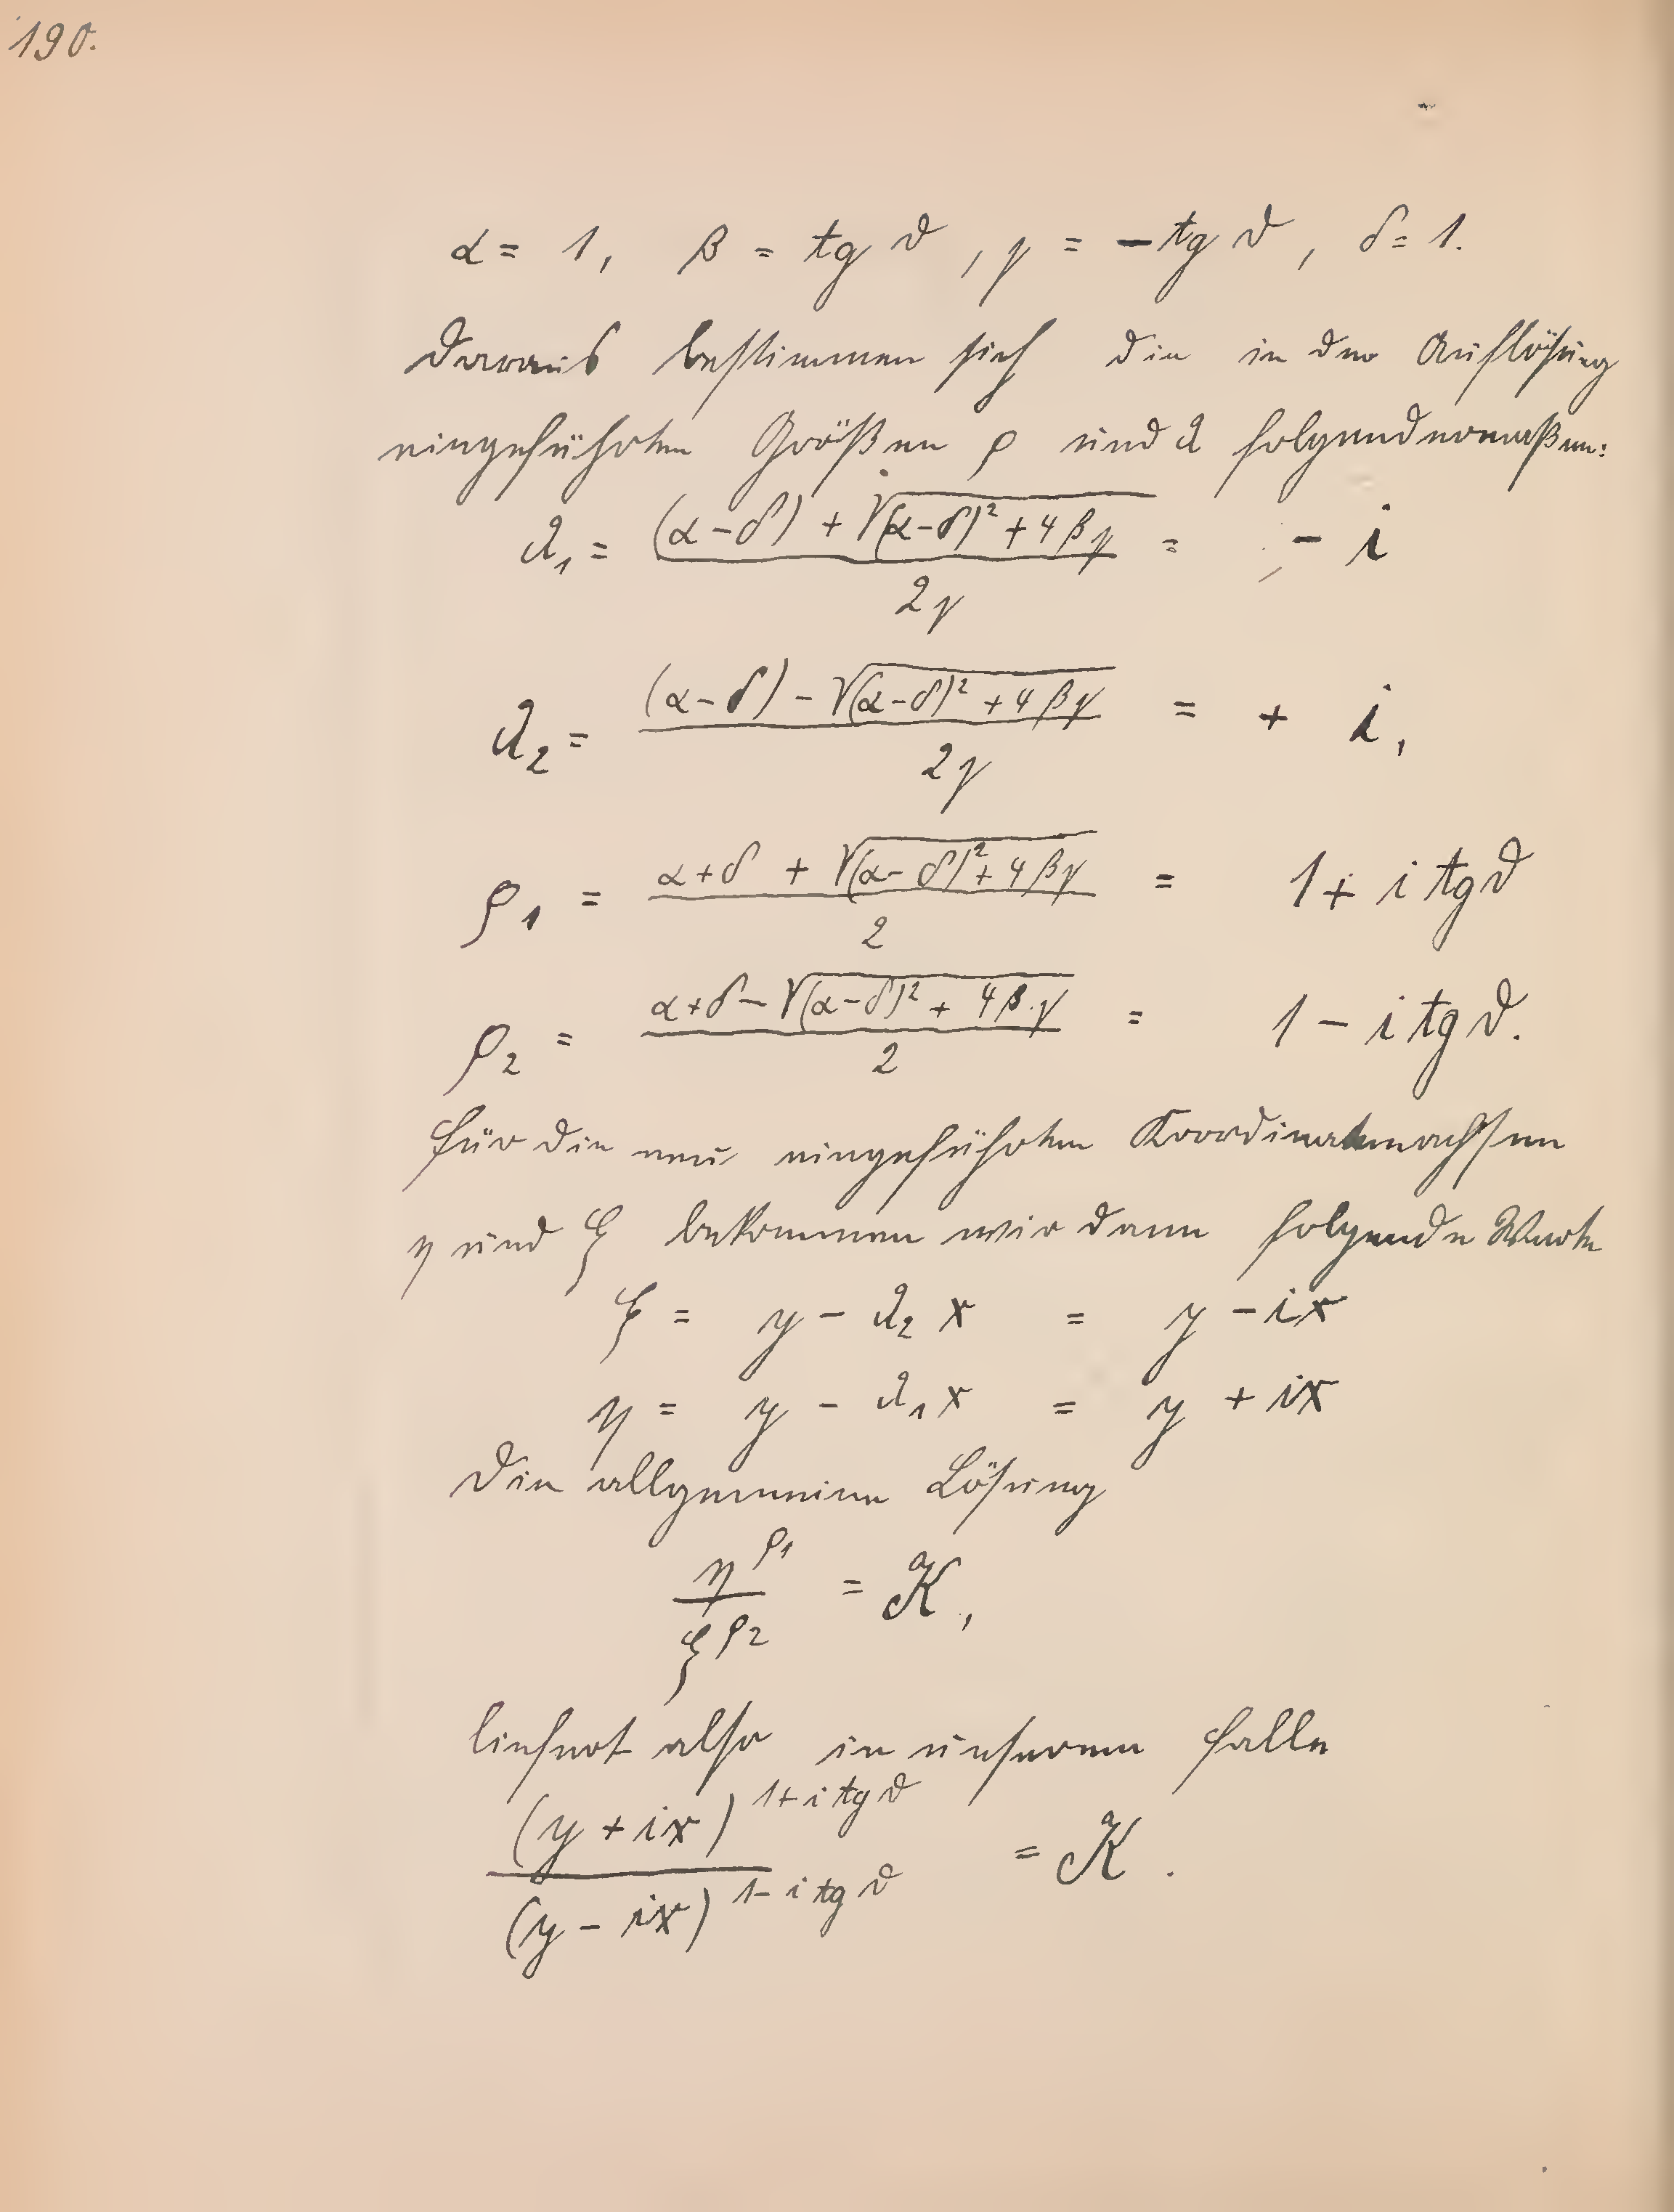 190.
α = 1, β = tg ϑ, γ = − tg ϑ, δ = 1.
Daraus bestimmen sich die in der Auflösung
eingeführten Größen ρ und λ folgendermaßen:
λ₁ = ((α−δ) + √((α−δ)² + 4βγ)) / 2γ = − i
λ₂ = ((α−δ) − √((α−δ)² + 4βγ)) / 2γ = + i,
ρ₁ = (α+δ + √((α−δ)² + 4βγ)) / 2 = 1 + i tg ϑ
ρ₂ = (α+δ − √((α−δ)² + 4β·γ)) / 2 = 1 − i tg ϑ.
Für die neu eingeführten Koordinatenachsen
η und ξ bekommen wir dann folgende Werte
ξ = y − λ₂ x = y − ix
η = y − λ₁ x = y + ix
Die allgemeine Lösung
η^ρ₁ / ξ^ρ₂ = K,
liefert also in unserem Falle
(y + ix)^(1 + i tg ϑ) / (y − ix)^(1 − i tg ϑ) = K.